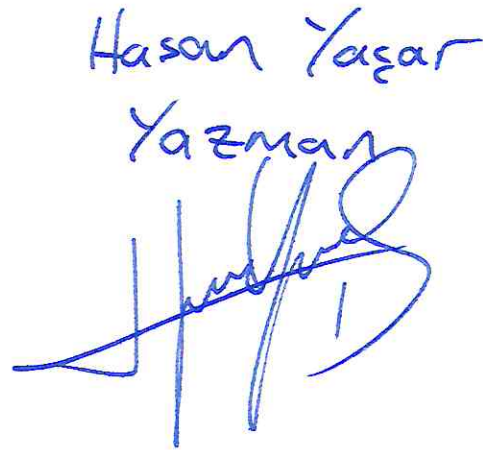 Hasan Yaşar
Yazman